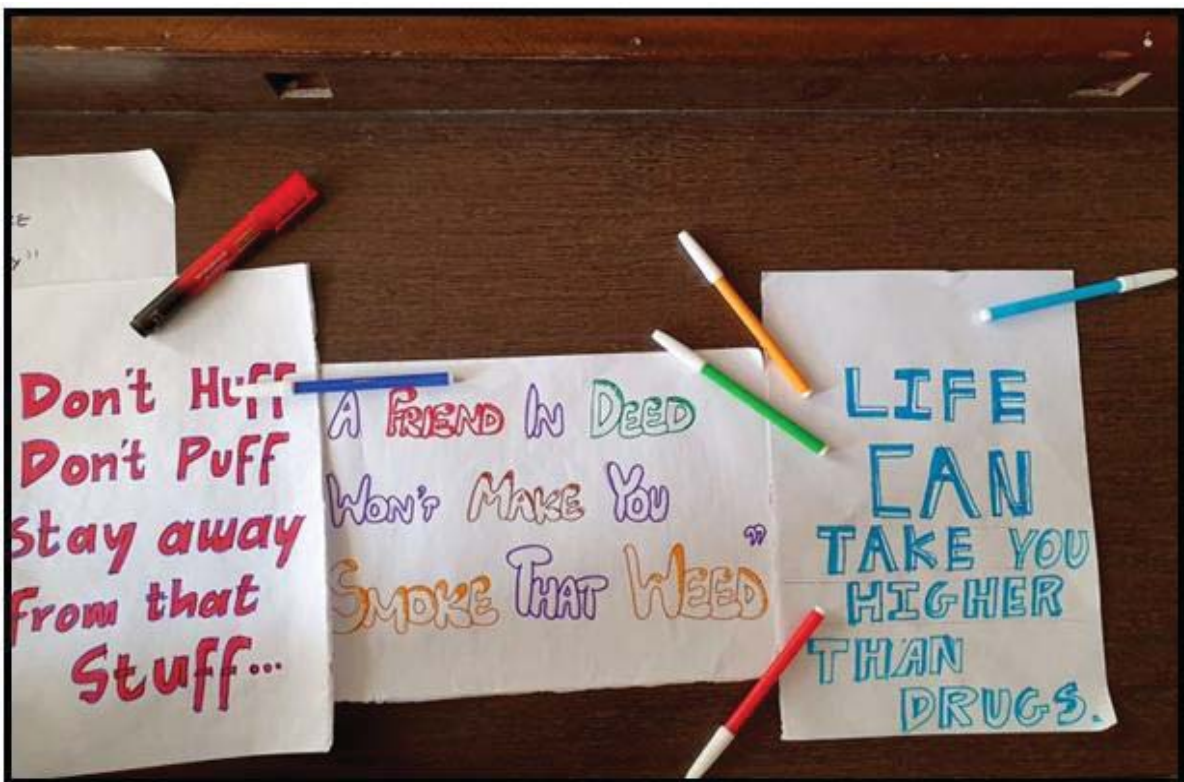 Don't Huff
Don't Puff
Stay away
From that
Stuff...
A FRIEND IN DEED
WON'T MAKE YOU
SMOKE THAT WEED"
LIFE
CAN
TAKE YOU
HIGHER
THAN
DRUGS.